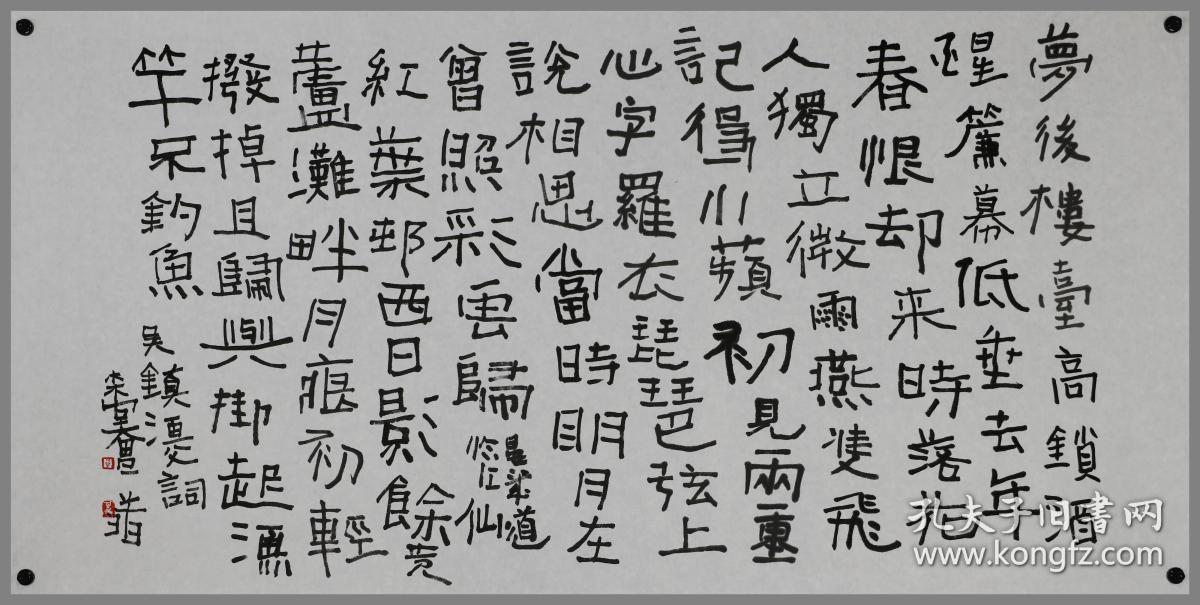 夢後樓臺高鎖酒
醒簾幕低垂去年
春恨却来時落花
人獨立微雨燕雙飛
記得小蘋初見兩重
心字羅衣琵琶弦上
說相思當時明月在
曾照彩雲歸
晏幾道
临江仙
紅葉邨西日影餘黃
蘆灘畔月痕初輕
撥掉且歸與掛起漁
竿不釣魚
吳鎮漁父詞
孔夫子旧書网
www.kongfz.com